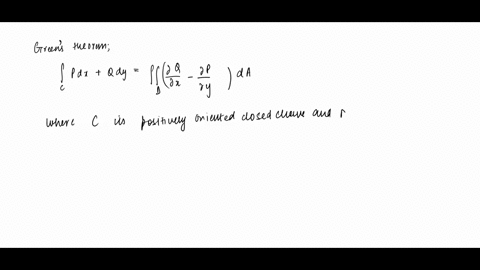 Green's theorem;
∫_C Pdx + Qdy = ∬_D (∂Q/∂x - ∂P/∂y) dA
where C is positively oriented closed curve and